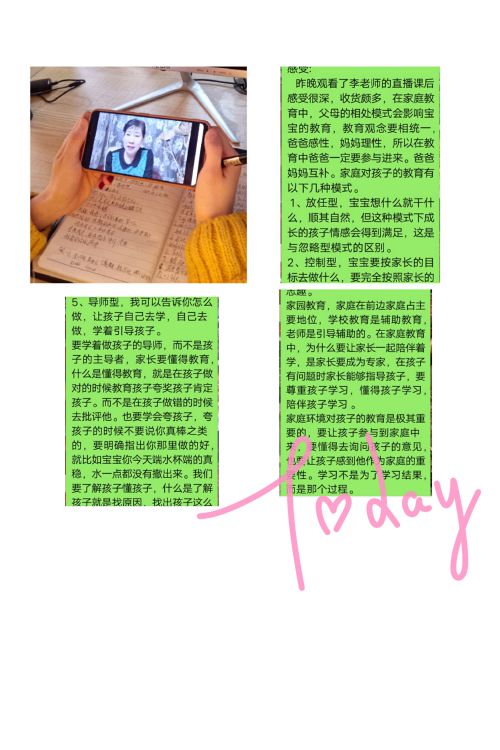 感受：
昨晚观看了李老师的直播课后
感受很深，收货颇多，在家庭教
育中，父母的相处模式会影响宝
宝的教育，教育观念要相统一，
爸爸感性，妈妈理性，所以在教
育中爸爸一定要参与进来。爸爸
妈妈互补。家庭对孩子的教育有
以下几种模式。
1、放任型，宝宝想什么就干什
么，顺其自然，但这种模式下成
长的孩子情感会得到满足，这是
与忽略型模式的区别。
2、控制型，宝宝要按家长的目
标去做什么，要完全按照家长的
5、导师型，我可以告诉你怎么
做，让孩子自己去学，自己去
做，学着引导孩子。
要学着做孩子的导师，而不是孩
子的主导者，家长要懂得教育，
什么是懂得教育，就是在孩子做
对的时候教育孩子夸奖孩子肯定
孩子。而不是在孩子做错的时候
去批评他。也要学会夸孩子，夸
孩子的时候不要说你真棒之类
的，要明确指出你那里做的好，
就比如宝宝你今天端水杯端的真
稳，水一点都没有撒出来。我们
要了解孩子懂孩子，什么是了解
孩子就是找原因，找出孩子这么
志趣。
家园教育，家庭在前边家庭占主
要地位，学校教育是辅助教育，
老师是引导辅助的。在家庭教育
中，为什么要让家长一起陪伴着
学，是家长要成为专家，在孩子
有问题时家长能够指导孩子，要
尊重孩子学习，懂得孩子学习，
陪伴孩子学习。
家庭环境对孩子的教育是极其重
要的，要让孩子参与到家庭中
来，要懂得去询问孩子的意见，
也要让孩子感到他作为家庭的重
要性。学习不是为了学习结果，
而是那个过程。
Today